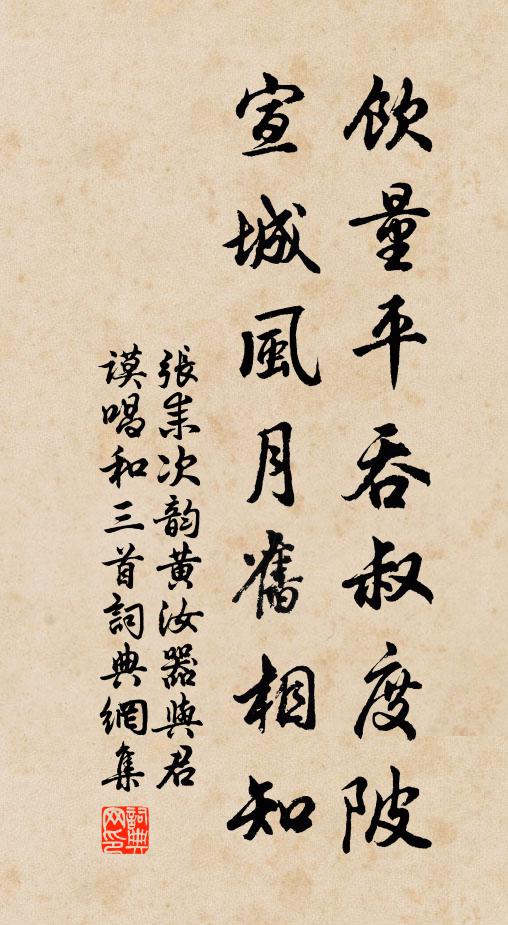 飲量平吞叔度陂
宣城風月舊相知
張耒次韵黄汝器與君
謨唱和三首詞典網集
詞典網印